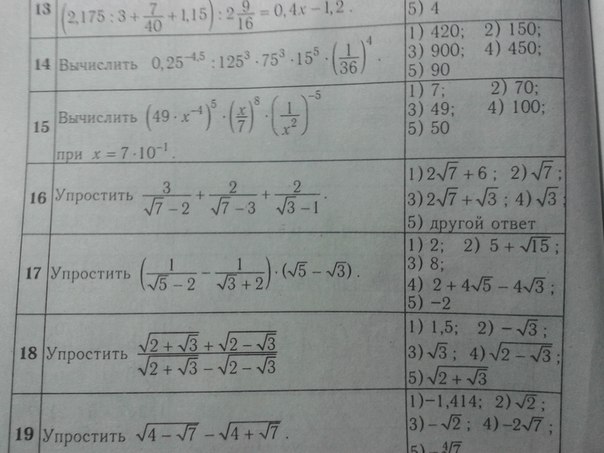 13 (2,175 : 3 + 7/40 + 1,15) : 2 9/16 = 0,4x − 1,2 .
5) 4
14 Вычислить 0,25^(−4,5) : 125³ · 75³ · 15⁵ · (1/36)⁴ .
1) 420; 2) 150;
3) 900; 4) 450;
5) 90
15 Вычислить (49 · x⁻⁴)⁵ · (x/7)⁸ · (1/x²)⁻⁵
при x = 7 · 10⁻¹ .
1) 7; 2) 70;
3) 49; 4) 100;
5) 50
16 Упростить 3/(√7 − 2) + 2/(√7 − 3) + 2/(√3 − 1) .
1) 2√7 + 6 ; 2) √7 ;
3) 2√7 + √3 ; 4) √3 ;
5) другой ответ
17 Упростить (1/(√5 − 2) − 1/(√3 + 2)) · (√5 − √3) .
1) 2; 2) 5 + √15 ;
3) 8;
4) 2 + 4√5 − 4√3 ;
5) −2
18 Упростить (√(2 + √3) + √(2 − √3))/(√(2 + √3) − √(2 − √3))
1) 1,5; 2) −√3 ;
3) √3 ; 4) √(2 − √3) ;
5) √(2 + √3)
19 Упростить √(4 − √7) − √(4 + √7) .
1) −1,414; 2) √2 ;
3) −√2 ; 4) −2√7 ;
5) −∜7